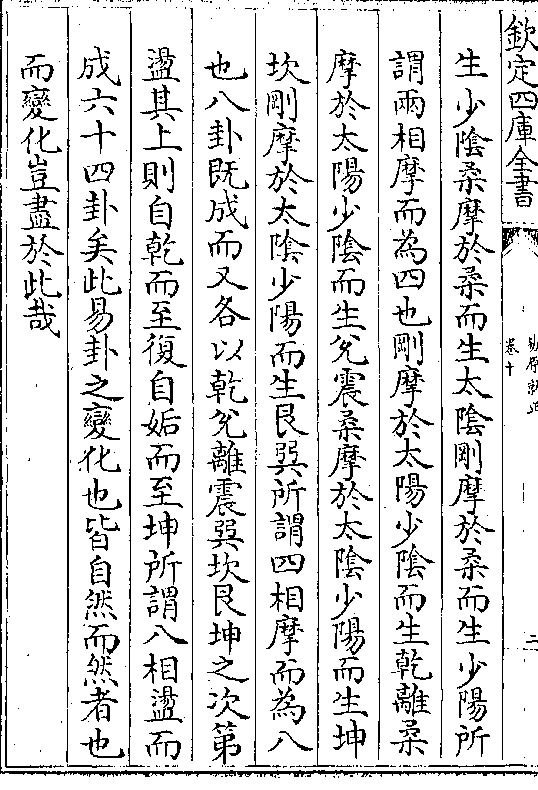 欽定四庫全書
卷十
生少陰柔摩於柔而生太陰剛摩於柔而生少陽所
謂兩相摩而為四也剛摩於太陽少陰而生乾離柔
摩於太陽少陰而生兊震柔摩於太陰少陽而生坤
坎剛摩於太陰少陽而生艮巽所謂四相摩而為八
也八卦既成而又各以乾兊離震巽坎艮坤之次第
盪其上則自乾而至復自姤而至坤所謂八相盪而
成六十四卦矣此易卦之變化也皆自然而然者也
而變化豈盡於此哉